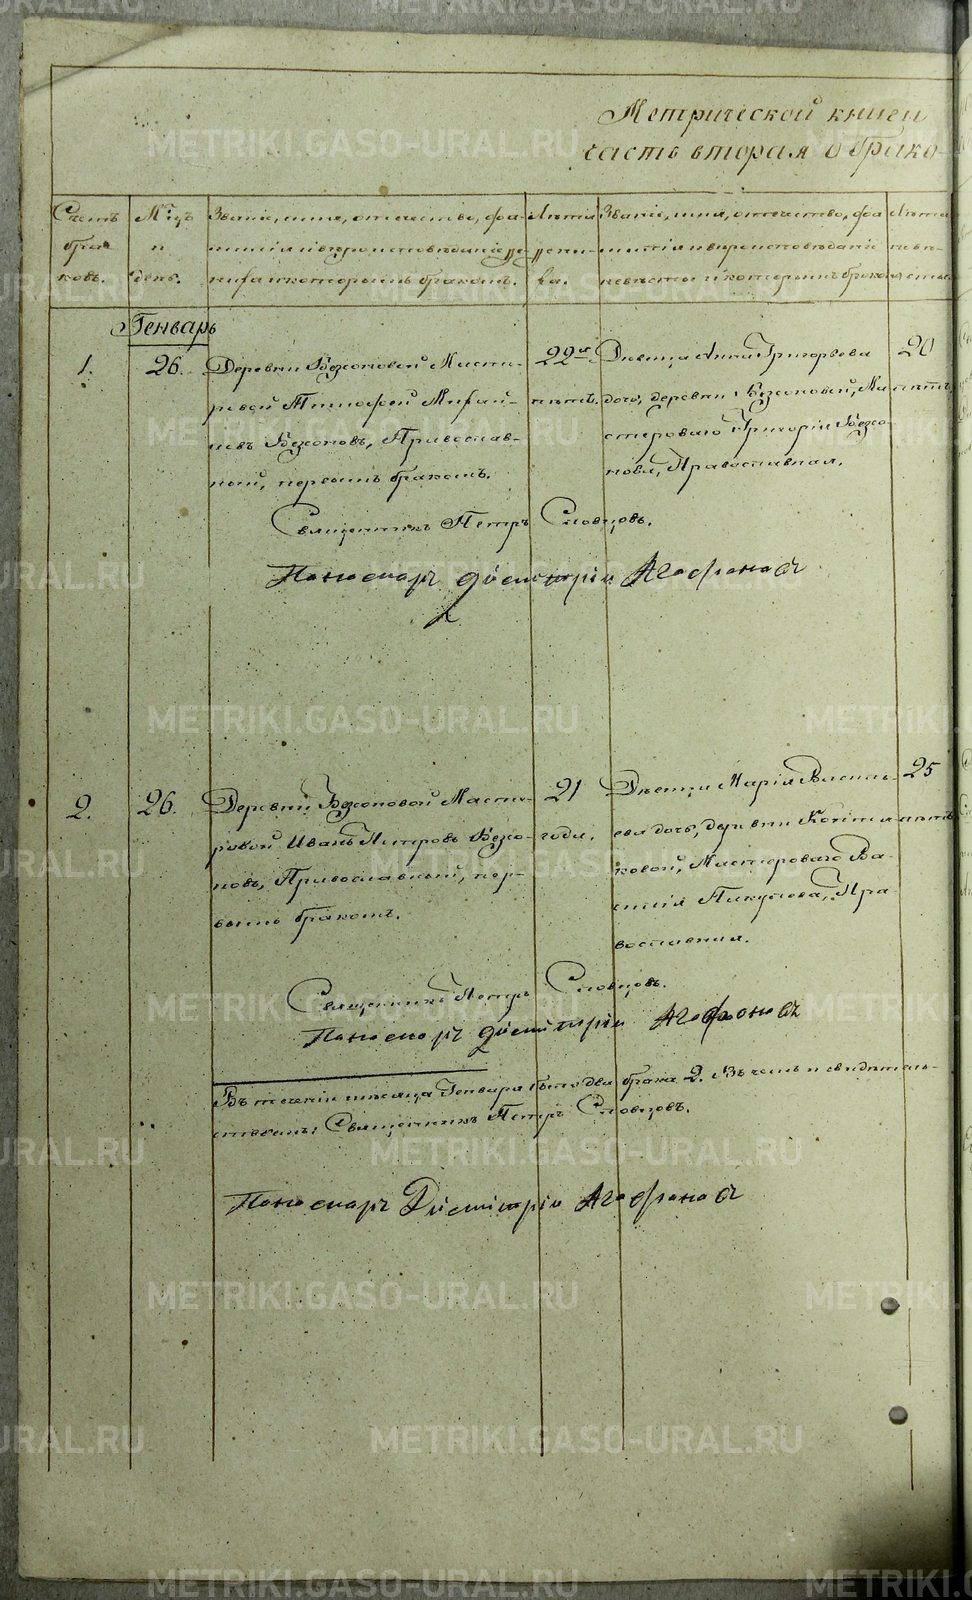 Метрической книги
часть вторая о брако-
Счетъ браковъ.
М-цъ и день.
Званіе, имя, отчество, фа-
милія и вѣроисповѣданіе же-
ниха и которымъ бракомъ.
Лѣта жениха.
Званіе, имя, отчество, фа
милія и вѣроисповѣданіе
невѣсты и которымъ бракомъ
Лѣта невѣсты.
Генварь
1.
26.
Деревни Безсоновой Масте-
ровой Тимофей Михай-
ловъ Безсоновъ, Православ-
ный, первымъ бракомъ.
22
лѣтъ.
Дѣвица Анна Григорьева
дочь, деревни Безсоновой, Ма
стероваго Григорія Безсо-
нова, Православная.
20
лѣтъ
Священникъ Петръ Словцовъ.
Пономарь Димитрій Агафоновъ
2.
26.
Деревни Безсоновой Масте-
ровой Иванъ Петровъ Безсо-
новъ, Православный, пер-
вымъ бракомъ.
21
годъ.
Дѣвица Марія Василь-
ева дочь, деревни
ковой, Мастероваго Ва-
силія Пра
вославная.
25
лѣтъ
Священникъ Петръ Словцовъ.
Пономарь Димитрій Агафоновъ
Въ теченіи мѣсяца Генваря было два брака 2. Въ чемъ и свидѣтель-
ствуемъ: Священникъ Петръ Словцовъ.
Пономарь Димитрій Агафоновъ
METRIKI.GASO-URAL.RU